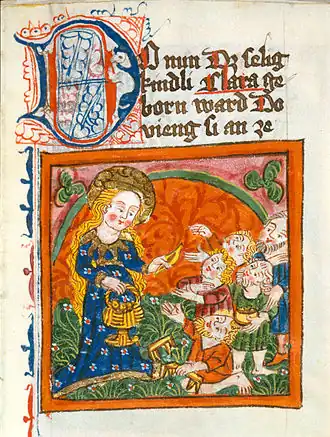 Do nun dz selig
kindli Clara ge
born ward Do
vieng si an ze